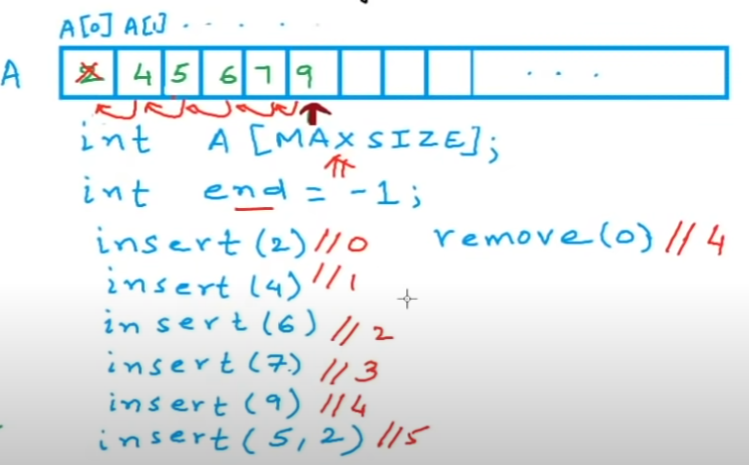 A[0] A[1] . . . . .
A 2 4 5 6 7 9 . . .
int A [MAXSIZE];
int end = -1;
insert(2) //0 remove(0) //4
insert(4) //1
insert(6) //2
insert(7) //3
insert(9) //4
insert(5,2) //5